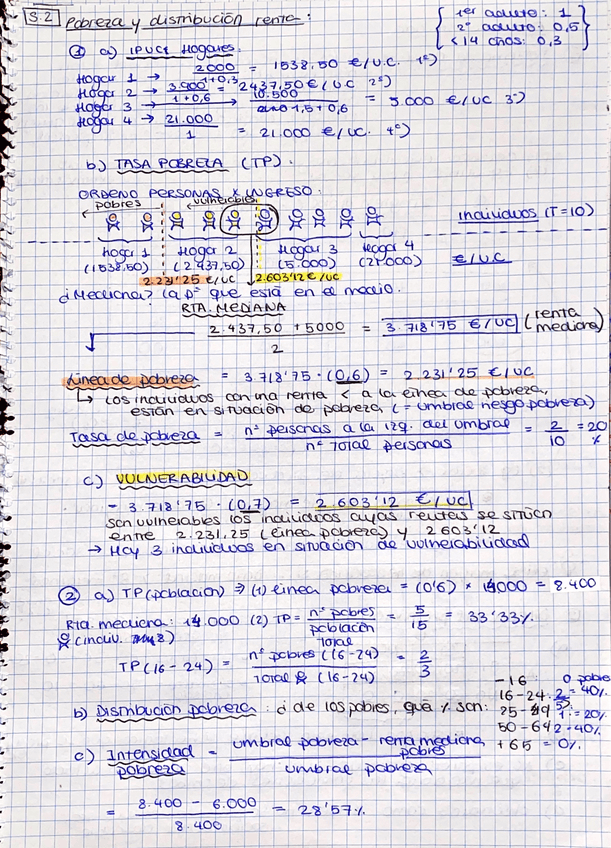 S.2 Pobreza y distribución renta:
1er adulto: 1
2º adulto: 0,5
<14 años: 0,3
① a) IPUC1 Hogares:
Hogar 1 → 2000 / 1+0,3 = 1538,50 €/U.C. 1º)
Hogar 2 → 3.900 / 1+0,6 = 2437,50 €/UC 2º)
Hogar 3 → 10.500 / 1,5+0,6 = 5.000 €/UC 3º)
Hogar 4 → 21.000 / 1 = 21.000 €/UC. 4º)
b) TASA POBREZA (TP).
ORDENO PERSONAS X INGRESO.
← pobres ← vulnerables
Individuos (T=10)
hogar 1 Hogar 2 Hogar 3 Hogar 4
(1538,50) (2.437,50) (5.000) (21.000) €/U.C
2.231'25 €/UC 2.603'12 €/UC
¿Mediana? La pª que está en el medio.
RTA. MEDIANA
2.437,50 + 5000 / 2 = 3.718'75 €/UC (renta mediana)
Línea de pobreza = 3.718'75 · (0,6) = 2.231'25 €/UC
↳ Los individuos con una renta < a la línea de pobreza,
están en situación de pobreza (= umbral riesgo pobreza)
Tasa de pobreza = nº personas a la izq. del umbral / nº total personas = 2 / 10 = 20 %
c) VULNERABILIDAD
- 3.718'75 · (0,7) = 2.603'12 €/UC
son vulnerables los individuos cuyas rentas se sitúen
entre 2.231,25 (línea pobreza) y 2603'12
→ Hay 3 individuos en situación de vulnerabilidad
② a) TP (población) ⇒ (1) línea pobreza = (0'6) × 14000 = 8.400
Rta mediana: 14.000 (2) TP = nº pobres / población total = 5 / 15 = 33'33%.
(indiv. 8)
TP (16-24) = nº pobres (16-24) / total (16-24) = 2 / 3
b) Distribución pobreza: ¿de los pobres, qué % son:
-16: 0 pobre
16-24. 2/5 = 40%.
25-49 1 = 20%
50-64 2 = 40%.
+65 = 0%.
c) Intensidad pobreza = umbral pobreza - renta mediana pobres / umbral pobreza
= 8.400 - 6.000 / 8.400 = 28'57%.